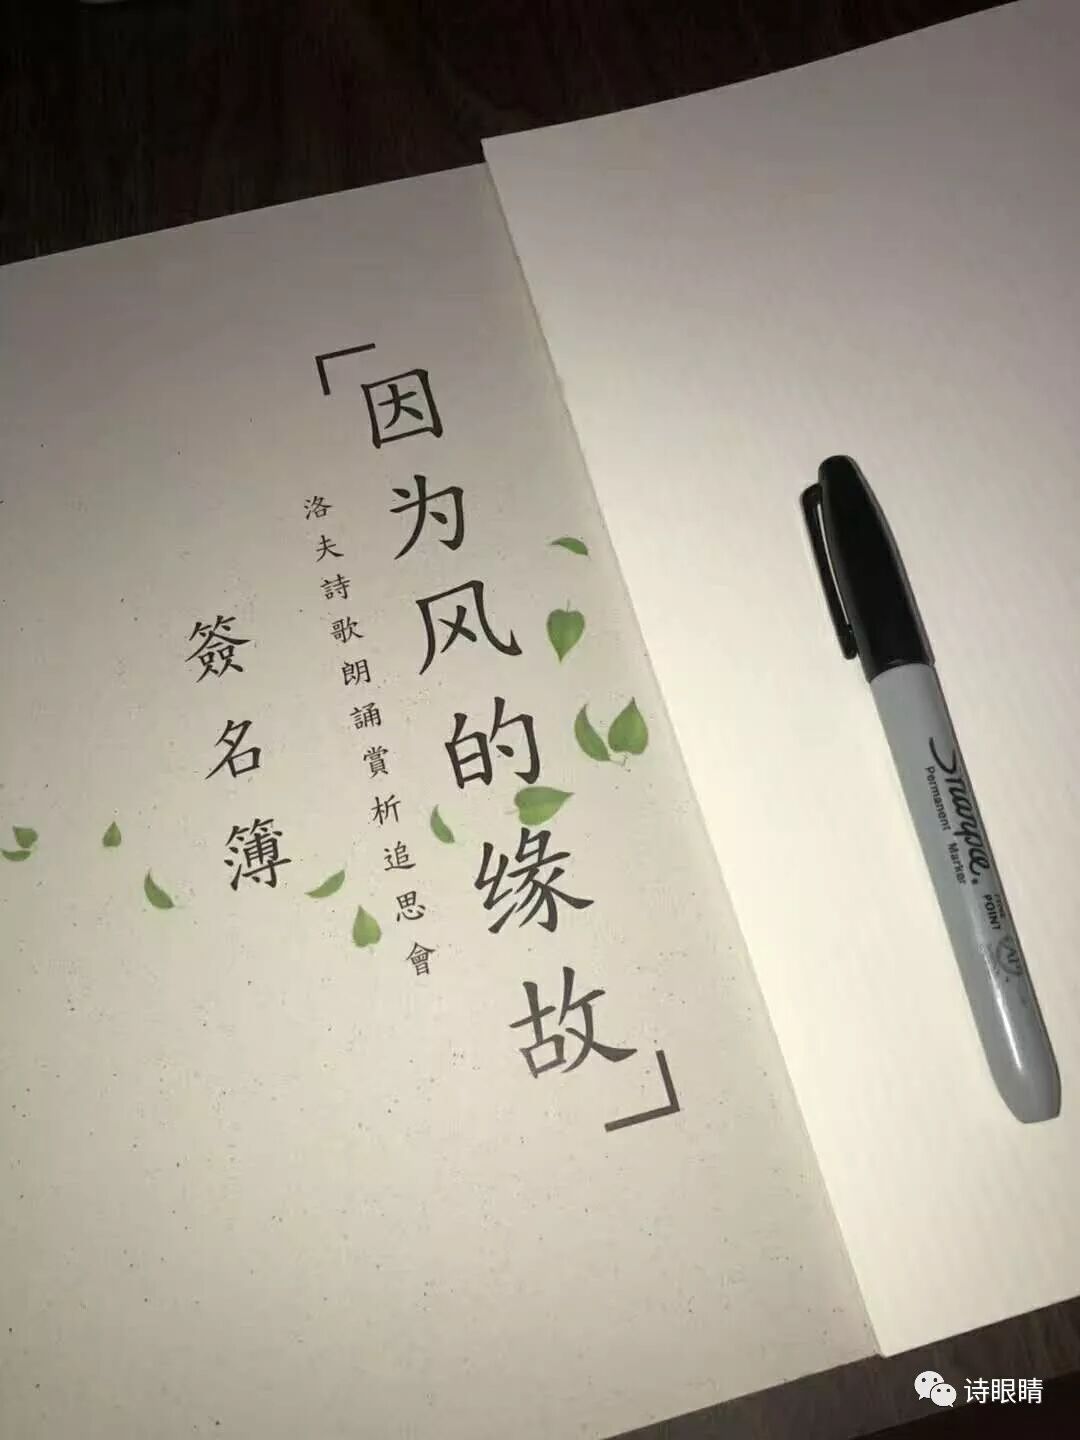 「因为风的缘故」
洛夫詩歌朗誦賞析追思會
簽名簿
Sharpie.
Permanent Marker
FINE POINT
AP
诗眼睛